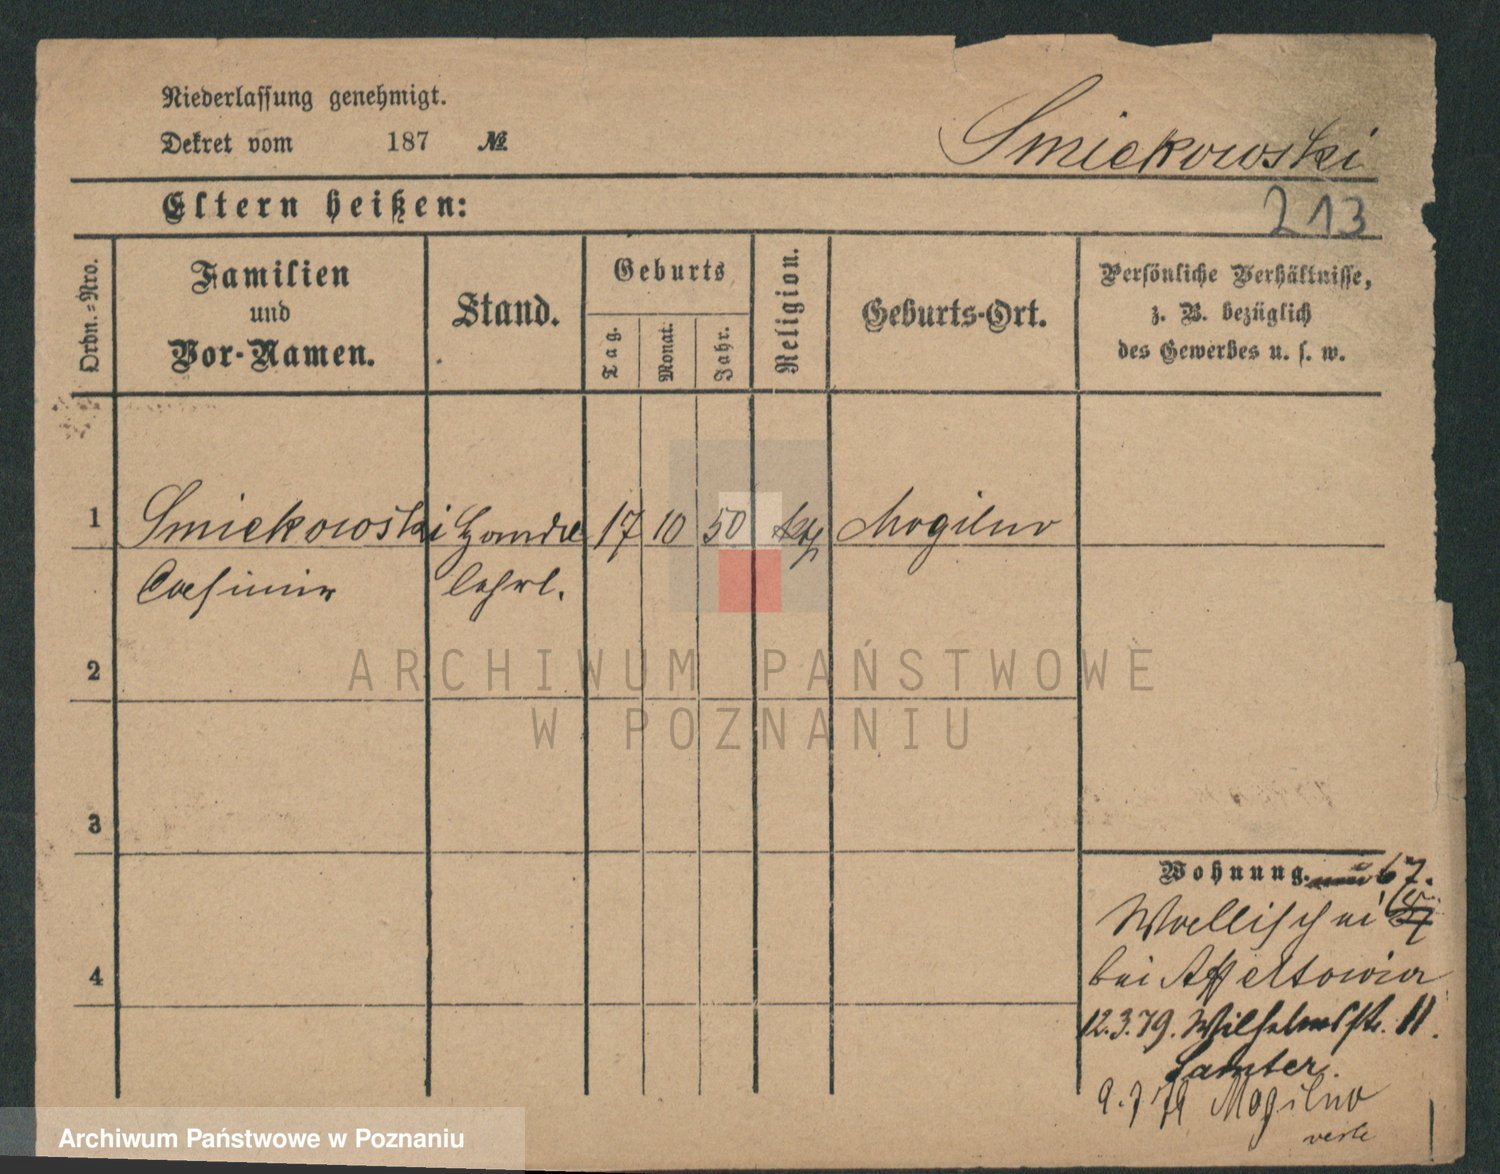 Niederlassung genehmigt.
Dekret vom 187 №
Smiekowski
Eltern heißen:
213
Ordn.-Nro.
Familien
und
Vor-Namen.
Stand.
Geburts
Tag.
Monat.
Jahr.
Religion.
Geburts-Ort.
Persönliche Verhältnisse,
z. B. bezüglich
des Gewerbes u. s. w.
1 Smiekowski Handl 17 10 50 kth Mogilno
Casimir lehrl.
2
ARCHIWUM PAŃSTWOWE
W POZNANIU
3
Wohnung. 67.
Wallischei
4
bei
12.3.79. Wilhelmsstr. 11.
Samter.
9. 79 Mogilno
Archiwum Państwowe w Poznaniu